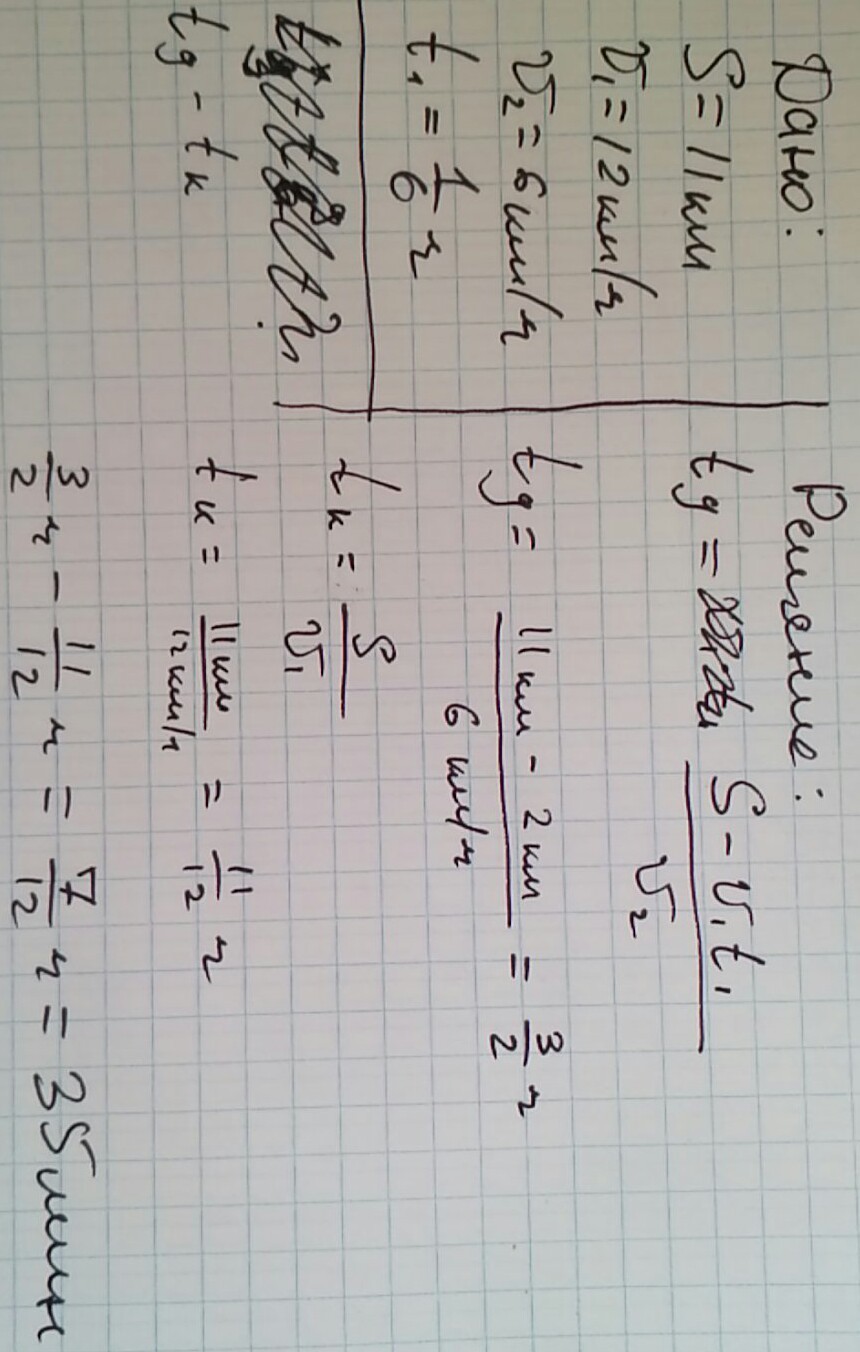 Дано:
S = 11 км
v₁ = 12 км/ч
v₂ = 6 км/ч
t₁ = 1/6 ч
tg - tк
Решение:
tg = (S - v₁t₁)/v₂
tg = (11 км - 2 км)/(6 км/ч) = 3/2 ч
tк = S/v₁
tк = 11 км/12 км/ч = 11/12 ч
3/2 ч - 11/12 ч = 7/12 ч = 35 мин